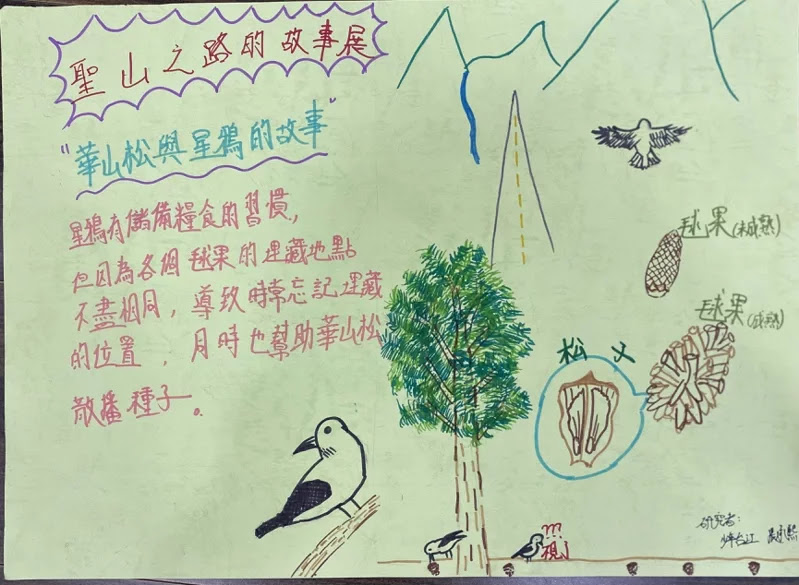 聖山之路的故事展
"華山松與星鴉的故事"
星鴉有儲備糧食的習慣,
但因為各個毬果的埋藏地點
不盡相同,導致時常忘記埋藏
的位置,月時也幫助華山松
散播種子。
毬果(未成熟)
毬果(成熟)
松
???
研究者: